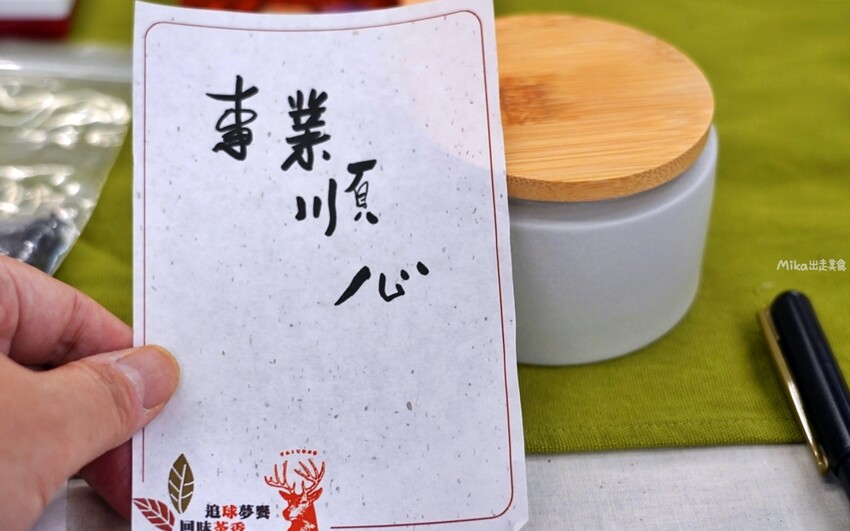 事業
順
心
Mika出走美食
TAIWAN
追球夢饗
回味茶香